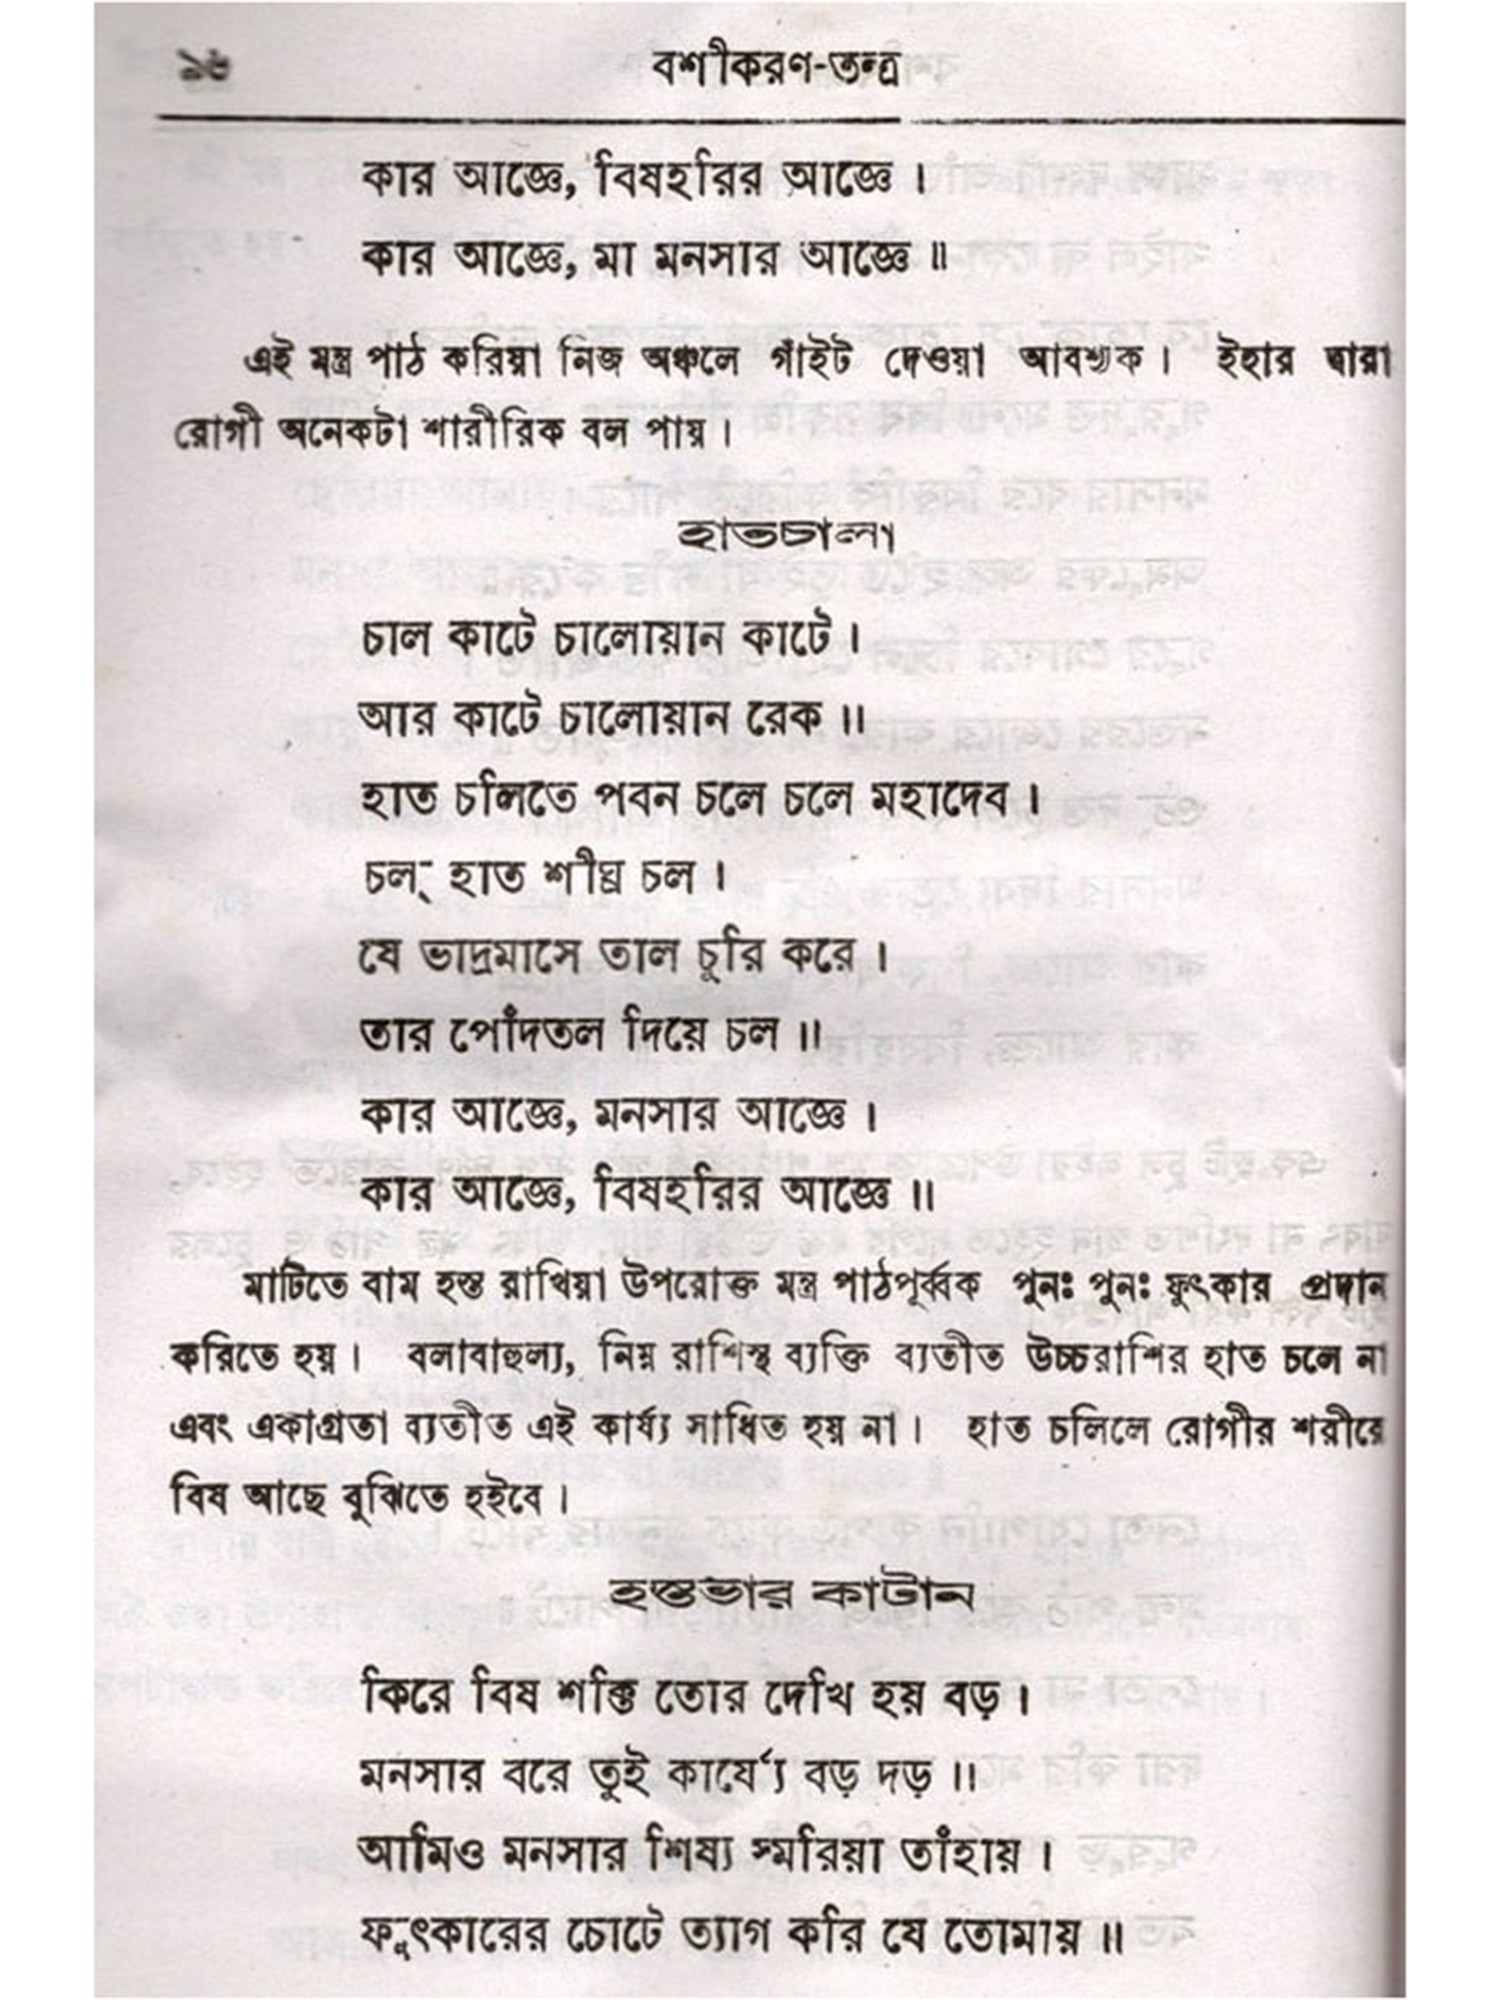 ৯৬ বশীকরণ-তন্ত্র
কার আজ্ঞে, বিষহরির আজ্ঞে ।
কার আজ্ঞে, মা মনসার আজ্ঞে ॥
এই মন্ত্র পাঠ করিয়া নিজ অঞ্চলে গাঁইট দেওয়া আবশ্যক । ইহার দ্বারা
রোগী অনেকটা শারীরিক বল পায় ।
হাতচালা
চাল কাটে চালোয়ান কাটে ।
আর কাটে চালোয়ান রেক ॥
হাত চলিতে পবন চলে চলে মহাদেব ।
চল্ হাত শীঘ্র চল ।
যে ভাদ্রমাসে তাল চুরি করে ।
তার পোঁদতল দিয়ে চল ॥
কার আজ্ঞে, মনসার আজ্ঞে ।
কার আজ্ঞে, বিষহরির আজ্ঞে ॥
মাটিতে বাম হস্ত রাখিয়া উপরোক্ত মন্ত্র পাঠপূর্ব্বক পুনঃ পুনঃ ফুৎকার প্রদান
করিতে হয় । বলাবাহুল্য, নিম্ন রাশিস্থ ব্যক্তি ব্যতীত উচ্চরাশির হাত চলে না
এবং একাগ্রতা ব্যতীত এই কার্য্য সাধিত হয় না । হাত চলিলে রোগীর শরীরে
বিষ আছে বুঝিতে হইবে ।
হস্তভার কাটান
কিরে বিষ শক্তি তোর দেখি হয় বড় ।
মনসার বরে তুই কার্য্যে বড় দড় ॥
আমিও মনসার শিষ্য স্মরিয়া তাঁহায় ।
ফুৎকারের চোটে ত্যাগ করি যে তোমায় ॥